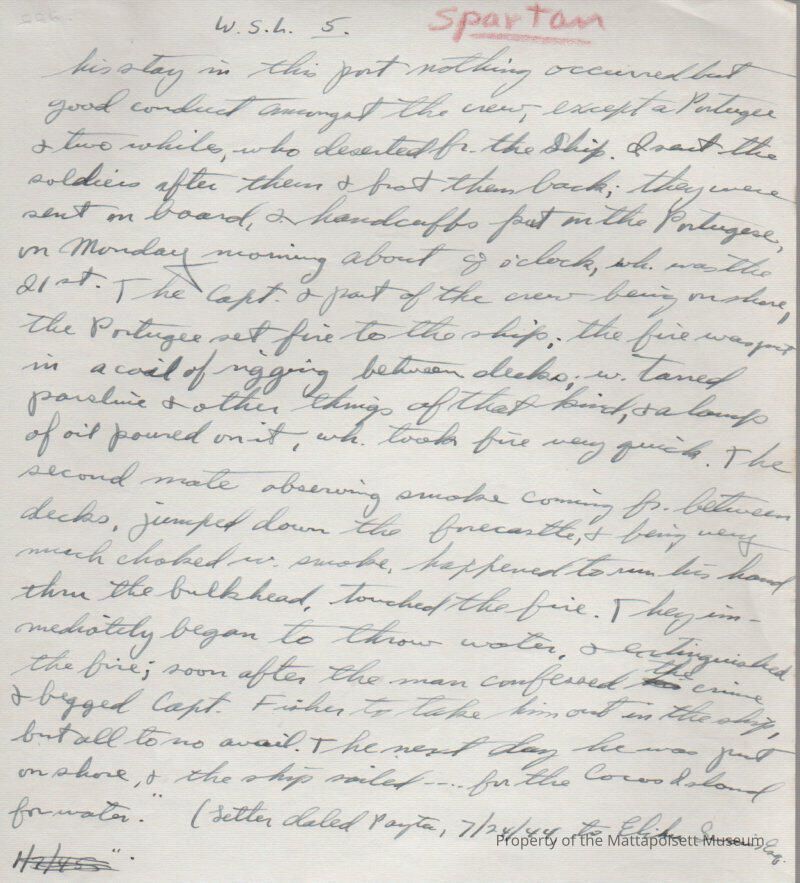 W.S.L. 5. Spartan
his stay in this port nothing occurred but
good conduct amongst the crew, except a Portugee
& two while, who deserted fr. the Ship. I sent the
soldiers after them & brot them back; they were
sent on board, & handcuffs put on the Portugese,
on Monday morning about 9 o'clock, wh. was the
21st. The Capt. & part of the crew being on shore,
the Portugee set fire to the ship; the fire was put
in a coil of rigging between decks; w. tarred
parcline & other things of that kind, & a lamp
of oil poured on it, wh. took fire very quick. The
second mate observing smoke coming fr. between
decks, jumped down the forecastle, & being very
much choked w. smoke, happened to run his hand
thru the bulkhead, touched the fire. They im-
mediately began to throw water, & extinguished
the fire; soon after the man confessed the crime
& begged Capt. Fisher to take him out in the ship,
but all to no avail. The next day he was put
on shore, & the ship sailed --.. for the Cocos Island
for water." (Letter dated Payta, 7/24/44 to Esq.
Property of the Mattapoisett Museum